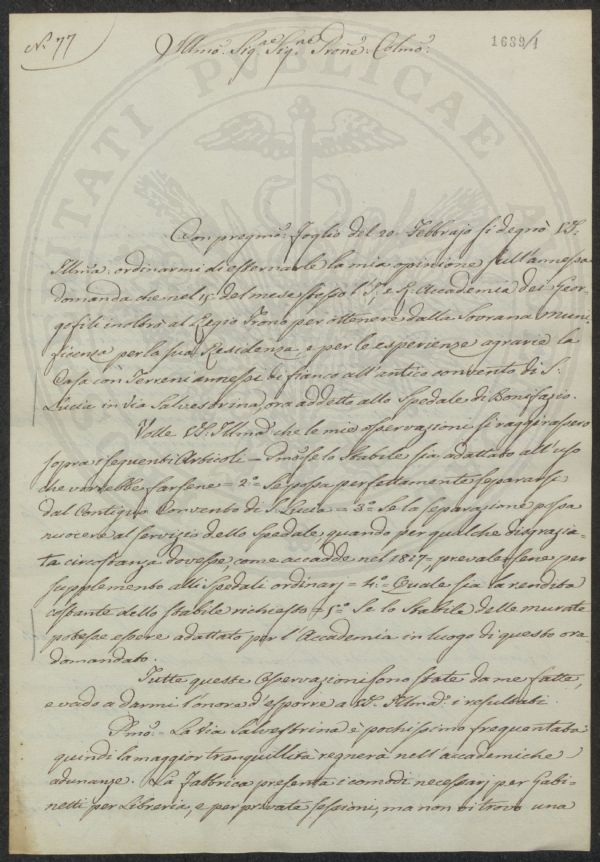 N. 77
Illmo: Sig.re Sig.re Prone: Colmo:
1689/1
Con pregmo: foglio del 20. Febbrajo si degnò VS.
Illma: ordinarmi di esternarle la mia opinione sull'annessa
domanda che nel dì del mese stesso l'I. e R. Accademia dei Geor-
gofili inoltrò al Regio Trono per ottenere dalla Sovrana Muni-
ficenza per la sua Residenza e per le esperienze agrarie la
Casa con Terreni annessi di fianco all'antico convento di S.
Lucia in via Salvestrina, ora addetta allo Spedale di Bonifazio.
Volle VS. Illma: che le mie osservazioni si raggirassero
sopra i seguenti Articoli = Pmo: se lo Stabile sia adattato all'uso
che vorrebbe farsene = 2o= Se possa perfettamente separarsi
dal Contiguo Convento di S. Lucia = 3o= Se la separazione possa
nuocere al servizio dello Spedale, quando per qualche disgrazia-
ta circostanza dovesse, come accadde nel 1817., prevalersene per
supplemento alli Spedali ordinarj = 4o= Quale sia la rendita
costante dello stabile richiesto = 5o= Se lo Stabile delle murate
potesse essere adattato per l'Accademia in luogo di questo ora
domandato.
Tutte queste Osservazioni sono state da me fatte,
e vado a darmi l'onore d'esporre a VS. Illma: i resultati.
Pmo: = La via Salvestrina è pochissimo frequentata
quindi la maggior tranquillità regnerà nell'accademiche
adunanze. La Fabbrica presenta i comodi necessarj per Gabi-
netti per Libreria, e per private sessioni, ma non vi trovo una